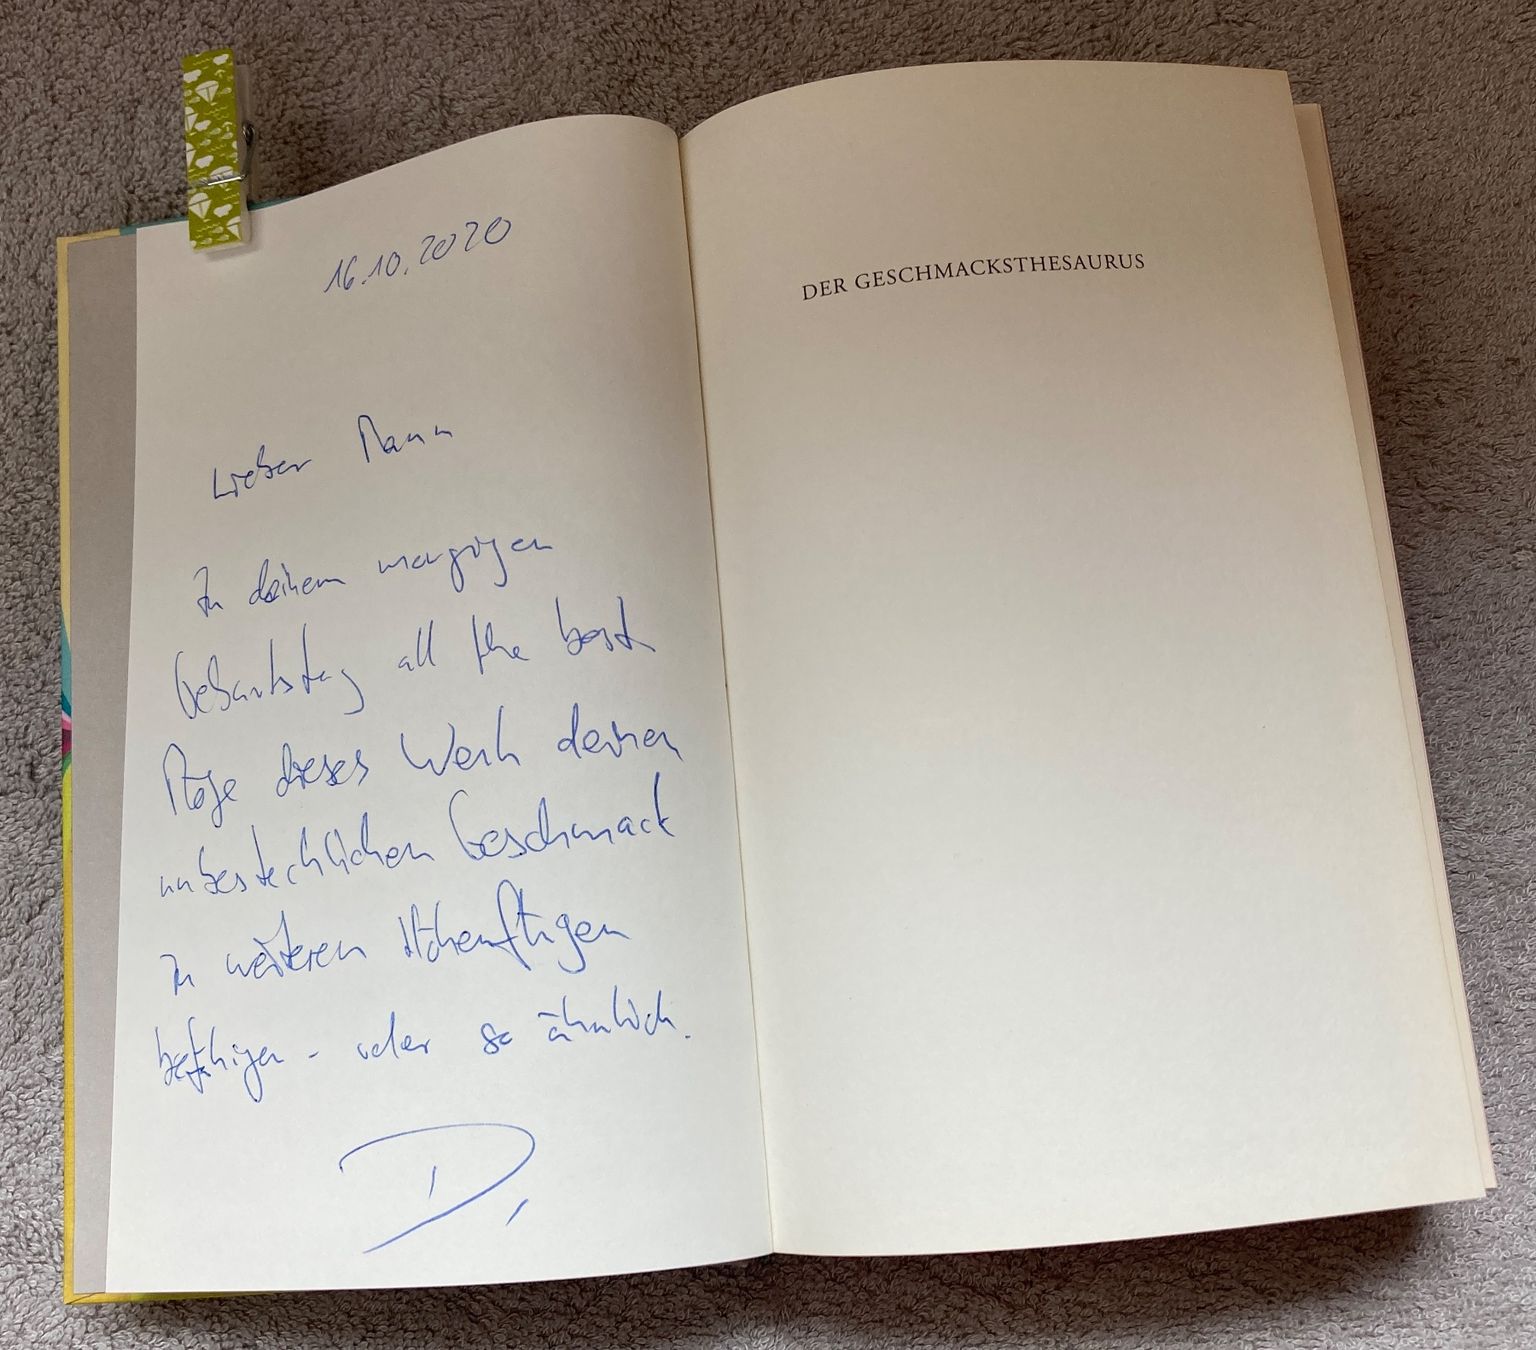 16.10.2020
Lieber Mann
Zu deinem morgigen
Geburtstag all the best
Möge dieses Werk deinen
unbestechlichen Geschmack
zu weiteren Höhenflügen
befähigen - oder so ähnlich.
D.
DER GESCHMACKSTHESAURUS